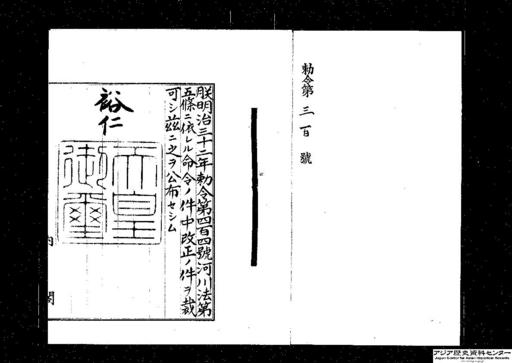 勅令第三百號
朕明治三十二年勅令第四百四號河川法第
五條ニ依レル命令ノ件中改正ノ件ヲ裁
可シ茲ニ之ヲ公布セシム
裕仁
天皇
御璽
内閣
アジア歴史資料センター
Japan Center for Asian Historical Records